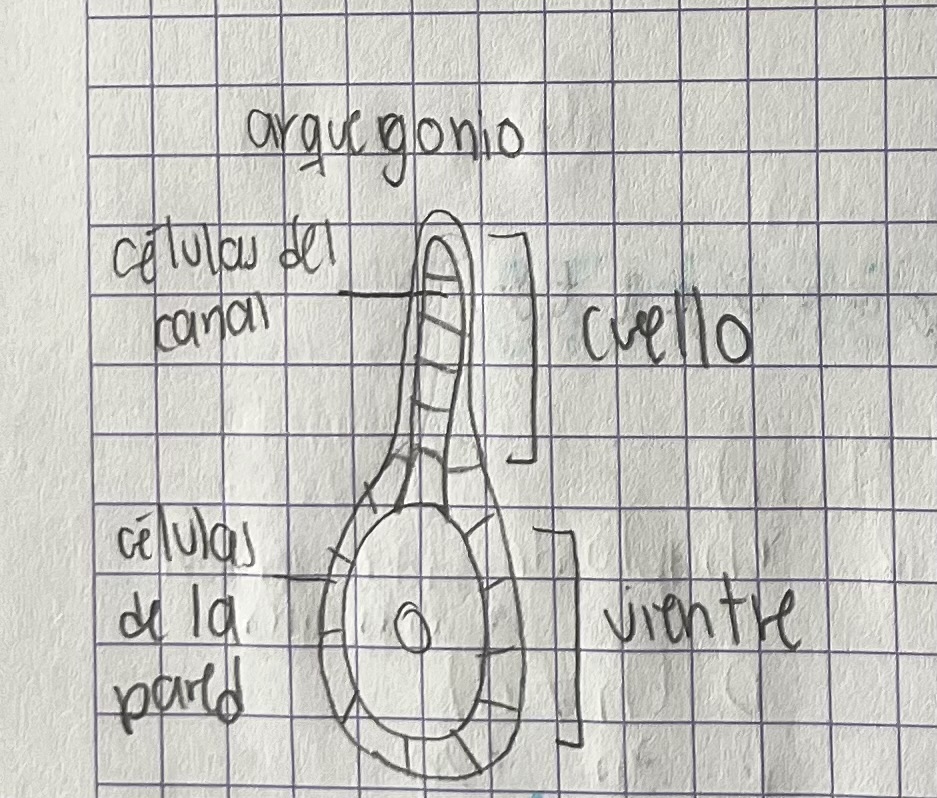 arquegonio
células del
canal
cuello
células
de la
pared
vientre